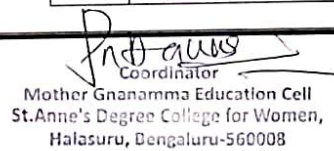 Coordinator
Mother Gnanamma Education Cell
St.Anne's Degree College for Women,
Halasuru, Bengaluru-560008